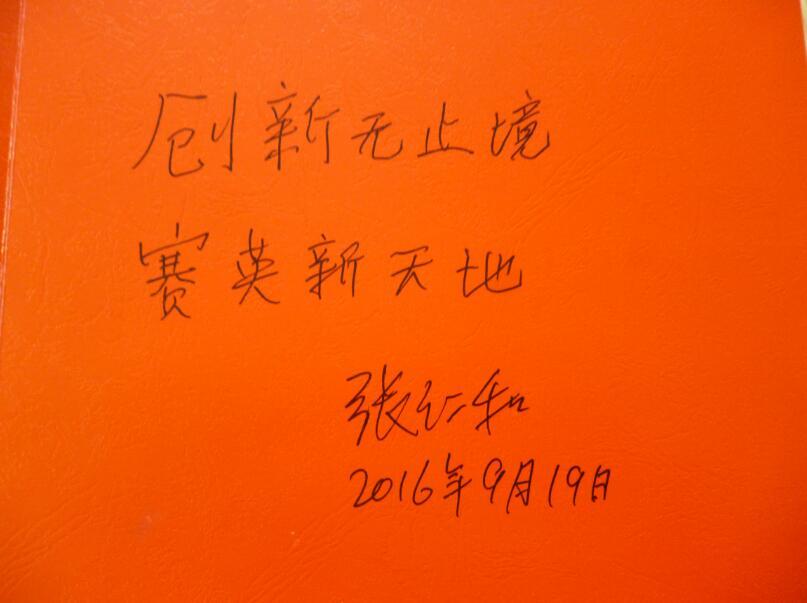 创新无止境
赛英新天地
张仁和
2016年9月19日